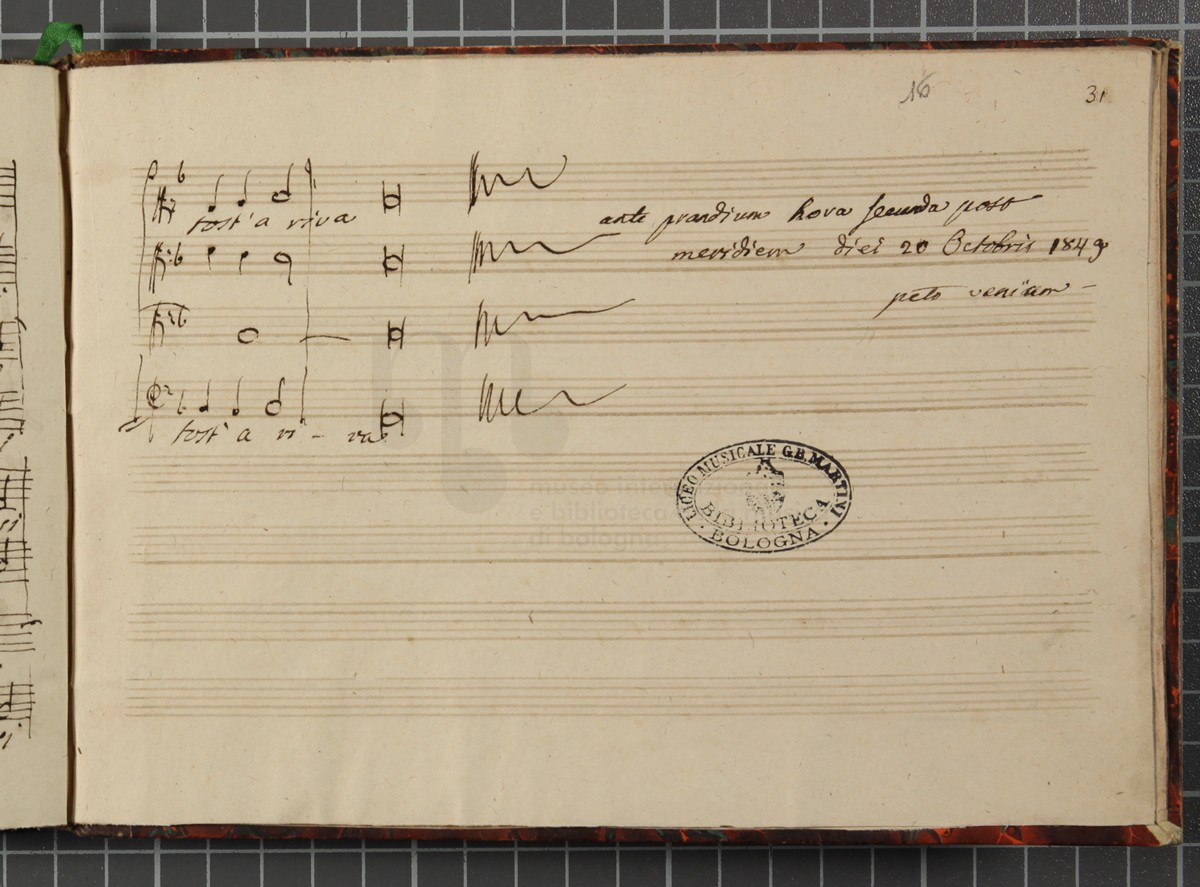 16
31
tost' a viva
ante prandium hora secunda post
meridiem diei 20 Octobris 1849
peto veniam
tost' a vi - va
LICEO MUSICALE G.B. MARTINI
BIBLIOTECA
BOLOGNA
museo inter
e biblioteca
di bologna